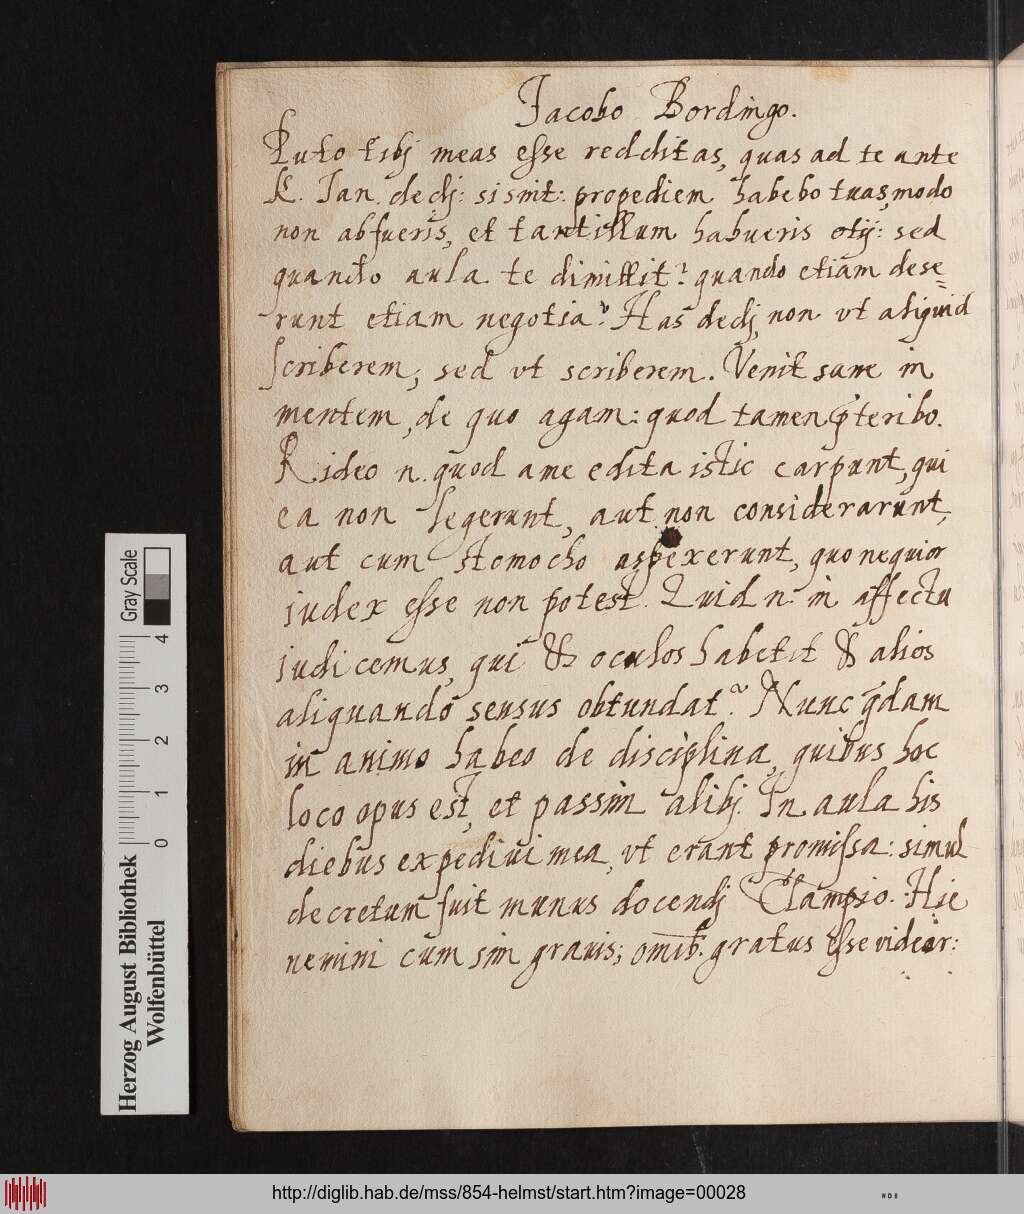 Jacobo Bordingo.
Puto tibj meas esse redditas, quas ad te ante
K. Jan. dedj: si sint: propediem habebo tuas, modo
non abfueris, et tantillum habueris otij: sed
quando aula te dimittit? quando etiam dese=
runt etiam negotia? Has dedj, non vt aliquid
scriberem; sed vt scriberem. Venit sane in
mentem, de quo agam: quod tamen pteribo.
Rideo n. quod a me edita istic carpunt, qui
ea non legerunt, aut non considerarunt,
aut cum stomocho aspexerunt, quo nequior
iudex esse non potest. Quid n. in affectu
iudicemus, qui & oculos habetet & alios
aliquando sensus obtundat? Nunc qdam
in animo habeo de disciplina, quibus hoc
loco opus est, et passim alibj. In aula his
diebus expediui mea, vt erant promissa: simul
decretum fuit munus docendj Clampio. Hic
nemini cum sim grauis; omib. gratus esse videor:
Gray Scale
4
3
2
1
0
Herzog August Bibliothek
Wolfenbüttel
http://diglib.hab.de/mss/854-helmst/start.htm?image=00028
WDB